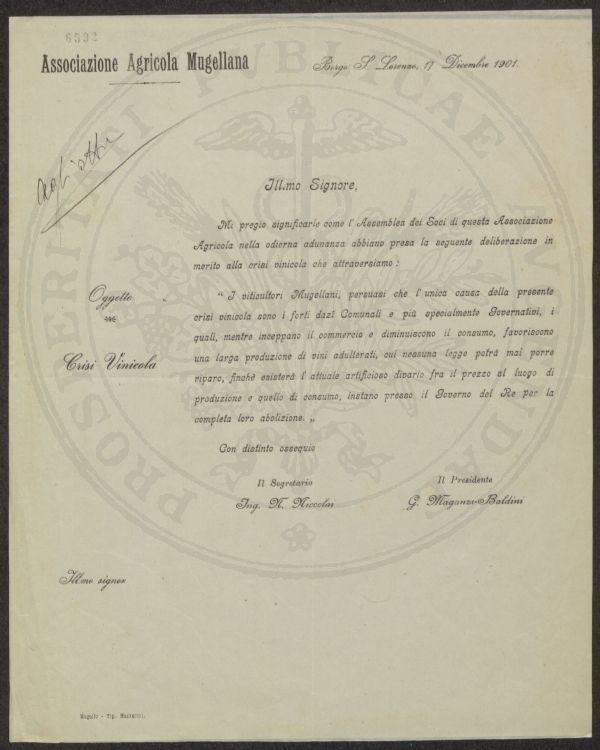 6592
Associazione Agricola Mugellana
Borgo S. Lorenzo, 17 Dicembre 1901.
agli atti
Ill.mo Signore,
Mi pregio significarle come l' Assemblea dei Soci di questa Associazione
Agricola nella odierna adunanza abbiano presa la seguente deliberazione in
merito alla crisi vinicola che attraversiamo :
Oggetto
Crisi Vinicola
“ I viticultori Mugellani, persuasi che l' unica causa della presente
crisi vinicola sono i forti dazî Comunali e più specialmente Governativi, i
quali, mentre inceppano il commercio e diminuiscono il consumo, favoriscono
una larga produzione di vini adulterati, cui nessuna legge potrà mai porre
riparo, finchè esisterà l' attuale artificioso divario fra il prezzo al luogo di
produzione e quello di consumo, instano presso il Governo del Re per la
completa loro abolizione. „
Con distinto ossequio
Il Segretario
Ing. N. Niccolai
Il Presidente
G. Maganzi-Baldini
Ill.mo signor
Mugello - Tip.
PROSPERITATI PUBLICAE AUGENDAE